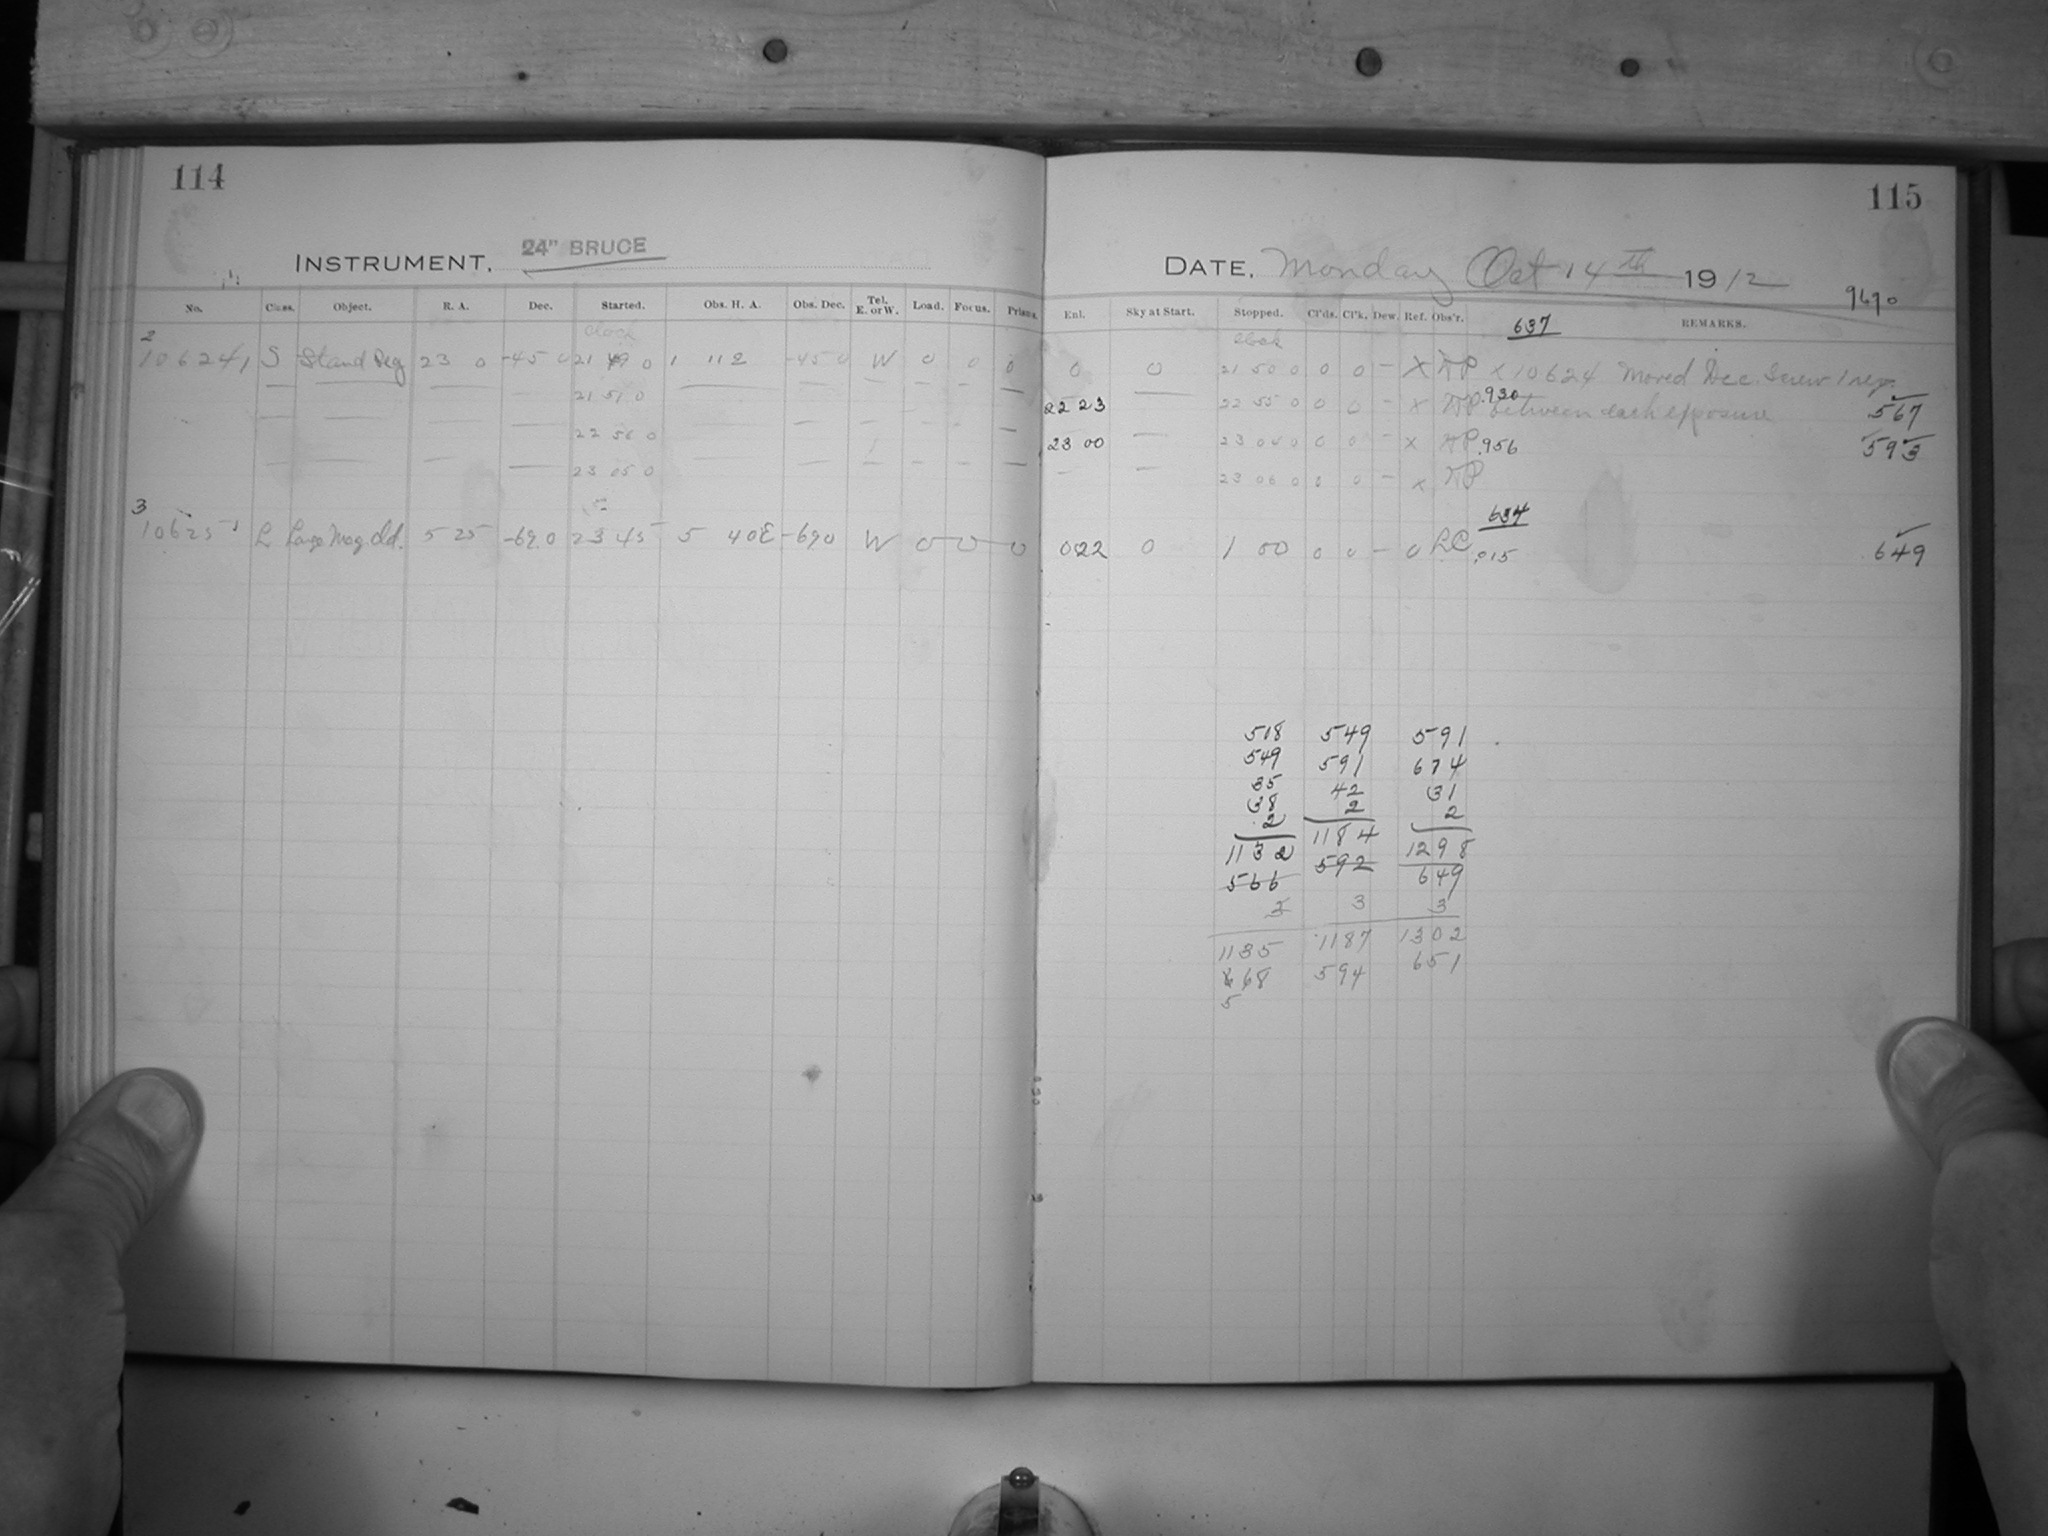 114
INSTRUMENT. 24" BRUCE
No. Class. Object. R. A. Dec. Started. Obs. H. A. Obs. Dec. Tel. E. or W. Load. Focus. Prisms.
clock
2
10624 1 S Stand Reg 23 0 -45 0 21 49 0 1 112 -45 0 W 0 0 0
— — — — 21 51 0 — — — — — —
— — — — 22 56 0 — — — — — —
— — — — 23 05 0 — — — — — —
3
10625 1 L Large Mag. Cld. 5 25 -69.0 23 45 5 40E -690 W 0 0 0
115
DATE. Monday Oct 14th 1912
9670
Enl. Sky at Start. Stopped. Cl'ds. Cl'k. Dew. Ref. Obs'r. 637 REMARKS.
clock
0 0 21 50 0 0 0 — X X 10624 Moved Dec. Screw 1 rev.
22 23 — 22 55 0 0 0 — x .930 between each exposure 567
23 00 — 23 04 0 0 0 — x .956 593
— — 23 06 0 0 0 — x
634
022 0 1 00 0 0 — 0 LC .015 649
518 549 591
549 591 674
35 42 31
38 2 2
2 1184 1298
1132 592 649
566 3 3
3
1135 1187 1302
668 594 651
5